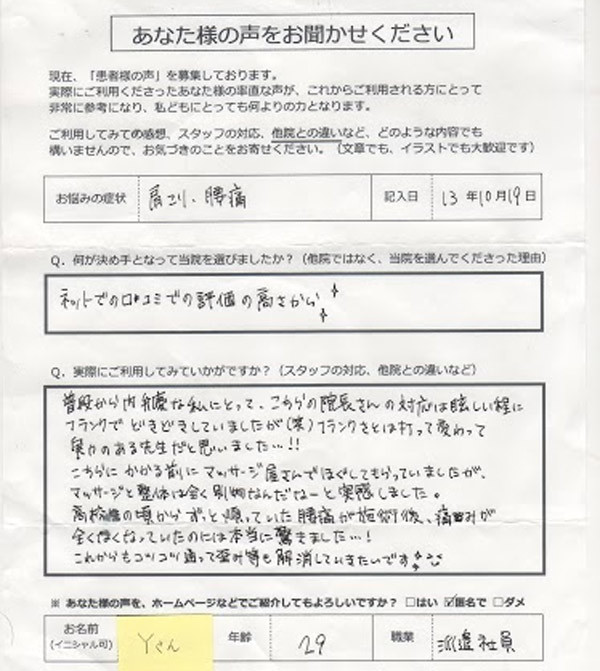 あなた様の声をお聞かせください
現在、「患者様の声」を募集しております。
実際にご利用くださったあなた様の率直な声が、これからご利用される方にとって
非常に参考になり、私どもにとっても何よりの力となります。
ご利用してみての感想、スタッフの対応、他院との違いなど、どのような内容でも
構いませんので、お気づきのことをお寄せください。（文章でも、イラストでも大歓迎です）
お悩みの症状 肩こり、腰痛 記入日 13年10月19日
Q. 何が決め手となって当院を選びましたか？（他院ではなく、当院を選んでくださった理由）
ネットでの口コミでの評価の高さから
Q. 実際にご利用してみていかがですか？（スタッフの対応、他院との違いなど）
普段から内弁慶な私にとって、こちらの院長さんの対応は眩しい程に
フランクで どきどきしていましたが(笑)フランクさとは打って変わって
実力のある先生だと思いました…!!
こちらに かかる前に マッサージ屋さんでほぐしてもらっていましたが、
マッサージと整体は全く別物なんだなーと実感しました。
高校生の頃から ずっと 患っていた腰痛が施術後、痛みが
全くなくなっていたのには本当に驚きました…!
これからもコツコツ通って歪み等も解消していきたいです
※ あなた様の声を、ホームページなどでご紹介してもよろしいですか？ □はい ☑匿名で □ダメ
お名前 Yさん 年齢 29 職業 派遣社員
(イニシャル可)